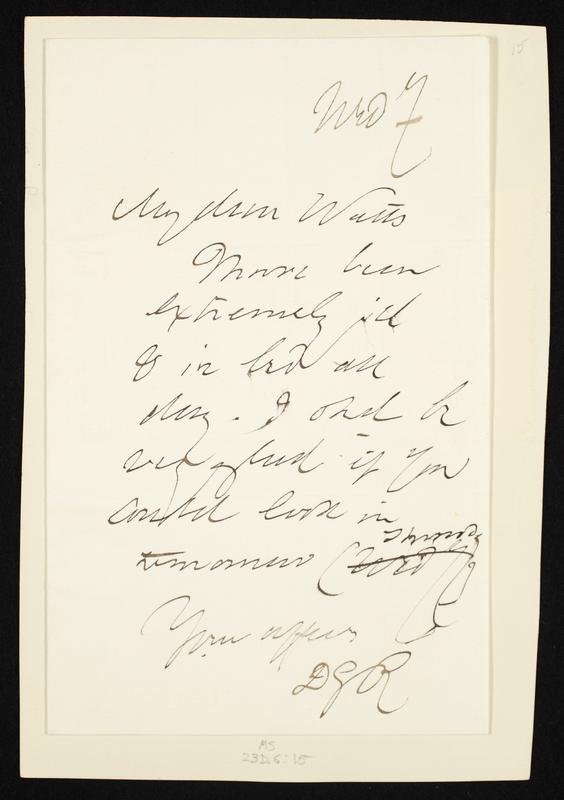 15
Wedy
My dear Watts
I have been
extremely ill
& in bed all
day. I shd be
very glad if you
could look in
tomorrow (Thursday
Wedy)
Your affec
DGR
MS
23D.6:15